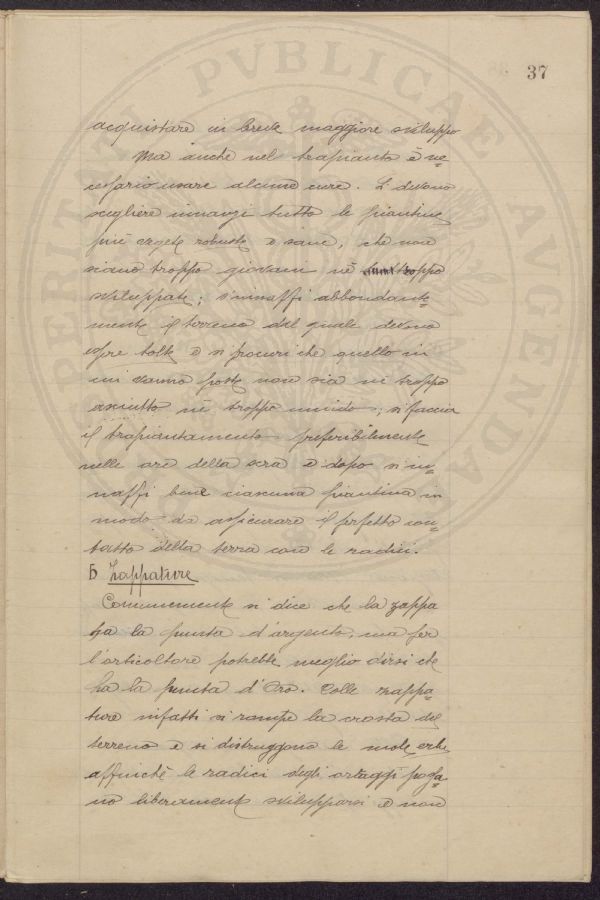 PERITAT PVBLICAE AVGENDAE
37
acquistare in breve maggiore sviluppo
Ma anche nel trapianto è ne=
cessario usare alcune cure. Si devono
scegliere innanzi tutto le piantine
più vegete robuste e sane, che non
siano troppo giovani nè troppo
sviluppate; s'innaffi abbondante=
mente il terreno dal quale devono
essere tolte e si procuri che quello in
cui vanno poste non sia nè troppo
asciutto nè troppo umido; si faccia
il trapiantamento preferibilmente
nelle ore della sera e dopo si in=
naffi bene ciascuna piantina in
modo da assicurare il perfetto con=
tatto della terra con le radici.
5 Zappature
Comunemente si dice che la zappa
ha la punta d'argento, ma per
l'orticoltore potrebbe meglio dirsi che
ha la punta d'Oro. Colle zappa=
ture infatti si rompe la crosta del
terreno e si distruggono le male erbe
affinchè le radici degli ortaggi possa=
no liberamente svilupparsi e non